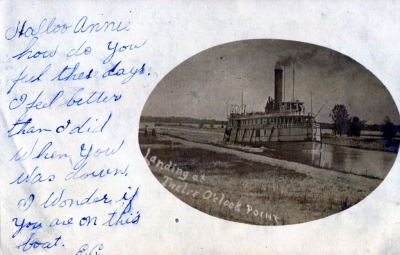 Halloo Annie
how do you
feel these days.
I feel better
than I did
When You
was down,
I Wonder if
You are on this
boat.
E.C.
Landing at
Twelve O'clock Point